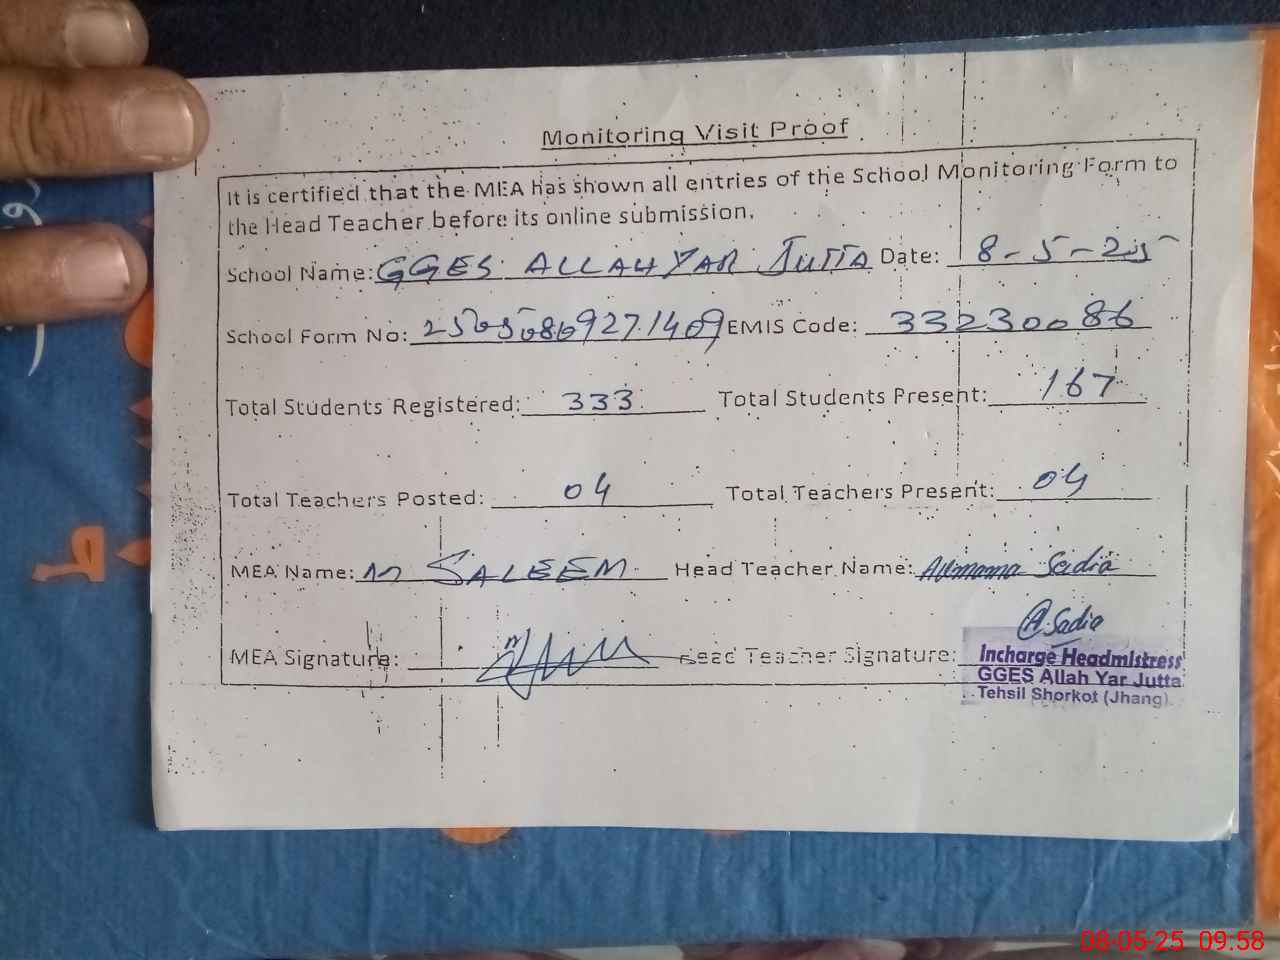 Monitoring Visit Proof
It is certified that the MEA has shown all entries of the School Monitoring Form to
the Head Teacher before its online submission.
School Name: GGES ALLAH YAR JUTTA Date: 8-5-25
School Form No: EMIS Code: 33230086
Total Students Registered: 333 Total Students Present: 167
Total Teachers Posted: 04 Total Teachers Present: 04
MEA Name: M SALEEM Head Teacher Name:
MEA Signature: Head Teacher Signature: A.Sadia
Incharge Headmistress
GGES Allah Yar Jutta
Tehsil Shorkot (Jhang)
08-05-25 09:58